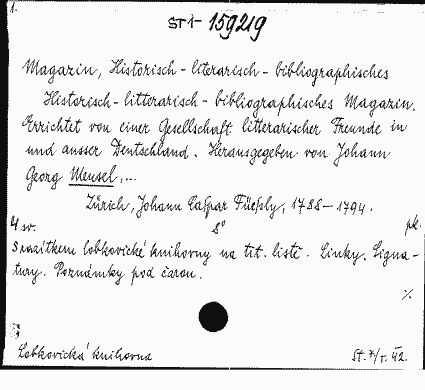 1.
ST I- 159219
Magazin, Historisch-literarisch-bibliographisches
Historisch-litterarisch-bibliographisches Magazin.
Errichtet von einer Gesellschaft litterarischer Freunde in
und ausser Deutschland. Herausgegeben von Johann
Georg Meusel,...
Zürich, Johann Caspar Füessly, 1788-1794.
4 sv. 8° pk.
S razítkem lobkovické knihovny na tit. listě. Linky. Signa-
tury. Poznámky pod čarou.
%
Lobkovická knihovna St. 7/r. 42.